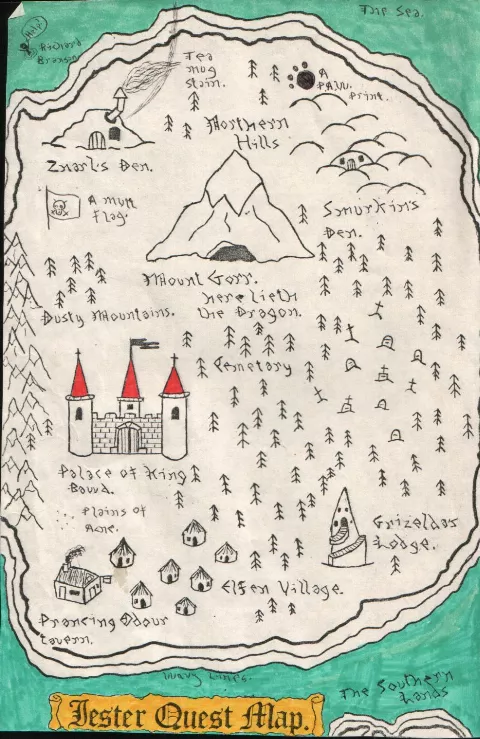 The Sea.
Help!
Richard
Branson
Tea
mug
stain.
A
PAW
print.
Northern
Hills
Znarl's Den.
A mutt
Flag.
Smurkin's
Den.
Mount Gorr.
here lieth
the Dragon.
Dusty Mountains.
Cemetary
Palace of King
Bound.
Plains of
Acne.
Grizeldas
Lodge.
Elfen Village.
Prancing Odour
tavern.
Wavy Lines.
The Southern
Lands
Jester Quest Map.